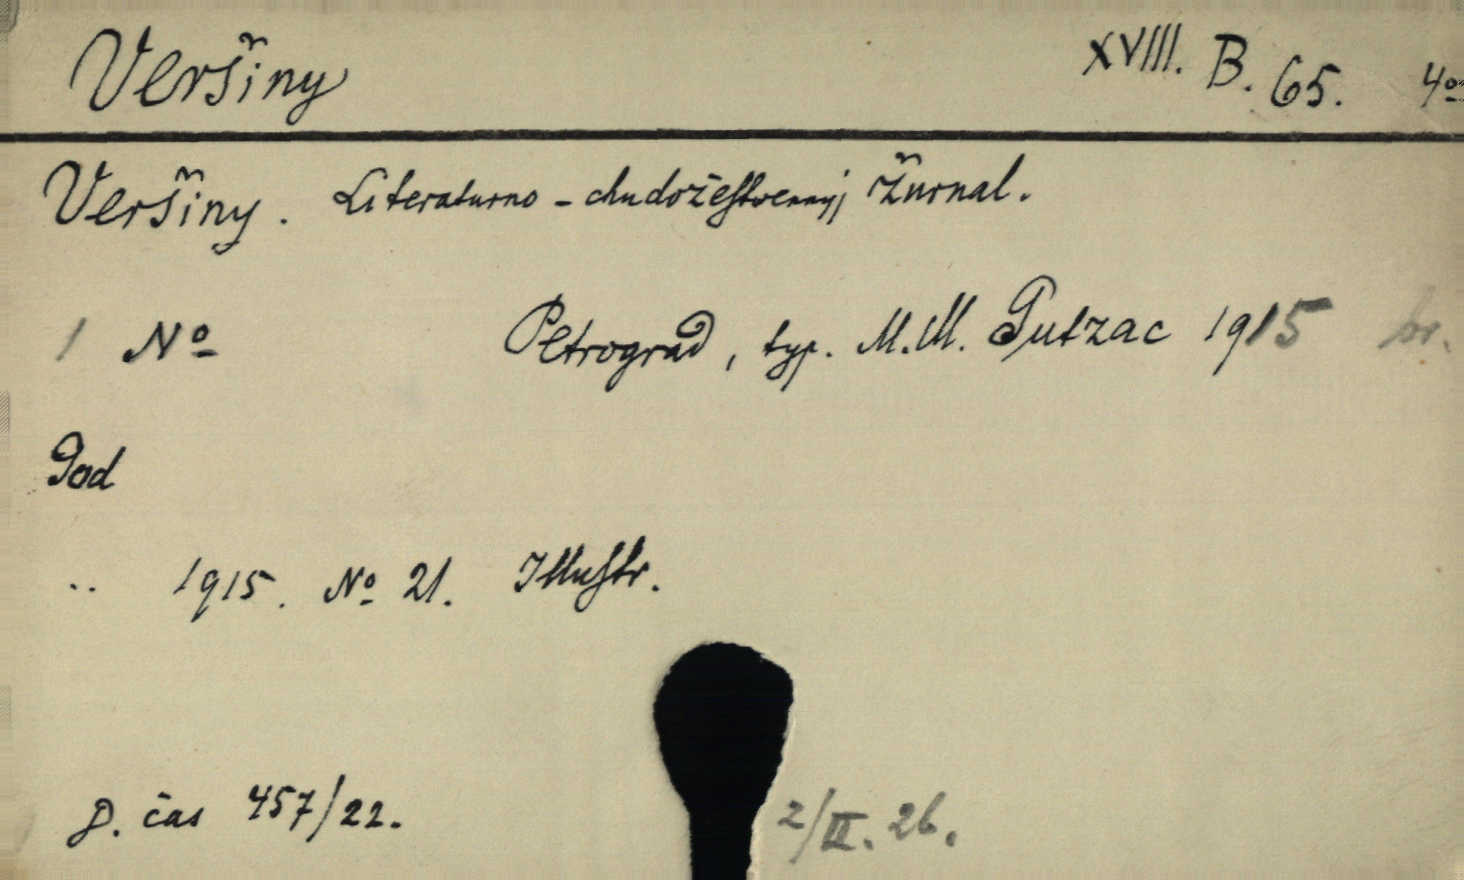 Veršiny XVIII. B. 65. 4º
Veršiny. Literaturno-chudožestvennyj žurnal.
1 Nº Petrograd, typ. M. M. Gutzac 1915 br.
God
.. 1915. Nº 21. Illustr.
D. čas 457/22. 2/II. 26.